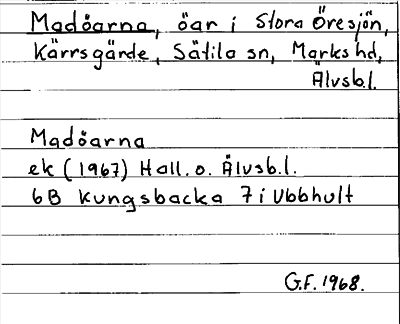 Madöarna, öar i Stora Öresjön,
Kärrsgärde, Sätila sn, Marks hd,
Älvsb.l.
Madöarna
ek (1967) Hall. o. Älvsb.l.
6B Kungsbacka 7 i Ubbhult
G.F. 1968.